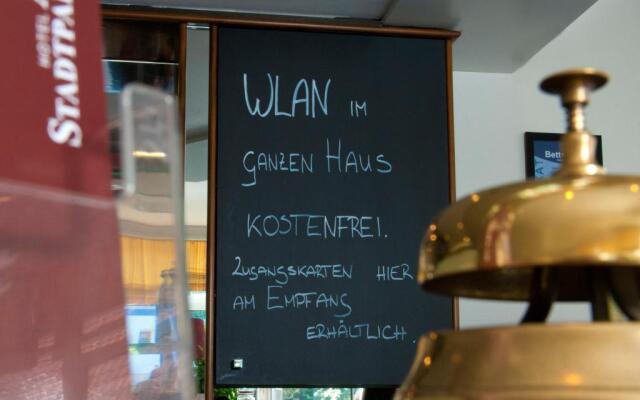 HOTEL
STADTPA
WLAN IM
GANZEN HAUS
KOSTENFREI.
ZUGANGSKARTEN HIER
AM EMPFANG
ERHÄLTLICH.
Bett